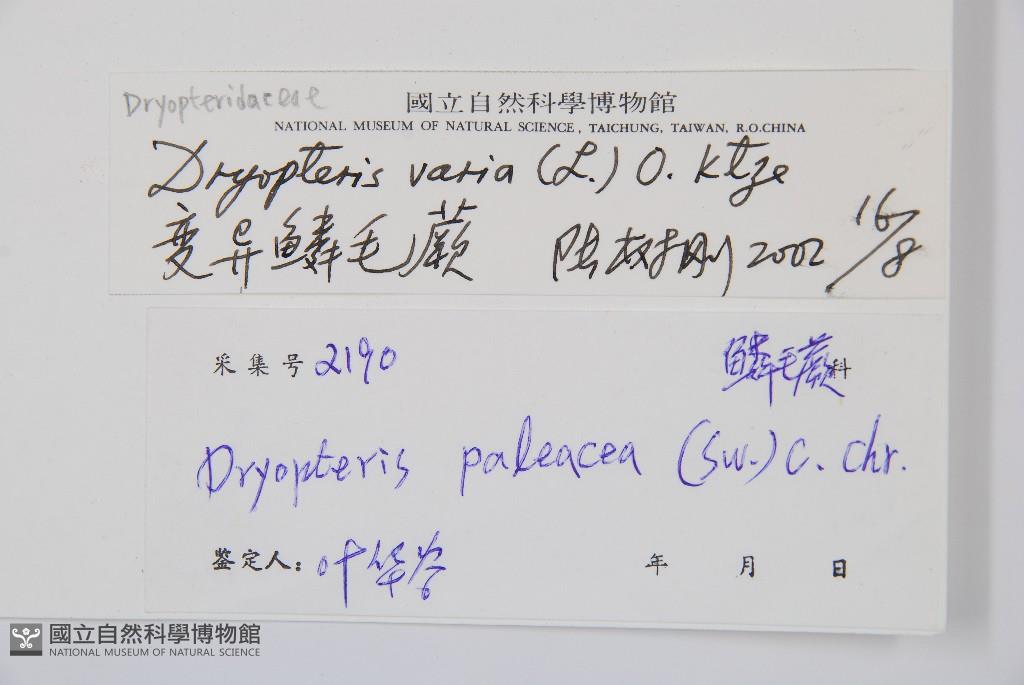 Dryopteridaceae
國立自然科學博物館
NATIONAL MUSEUM OF NATURAL SCIENCE, TAICHUNG, TAIWAN, R.O.CHINA
Dryopteris varia (L.) O. Ktze
变异鳞毛蕨 陆树刚 2002 16/8
采集号 2190 鳞毛蕨科
Dryopteris paleacea (Sw.) C. Chr.
鉴定人: 叶华谷 年 月 日
國立自然科學博物館
NATIONAL MUSEUM OF NATURAL SCIENCE